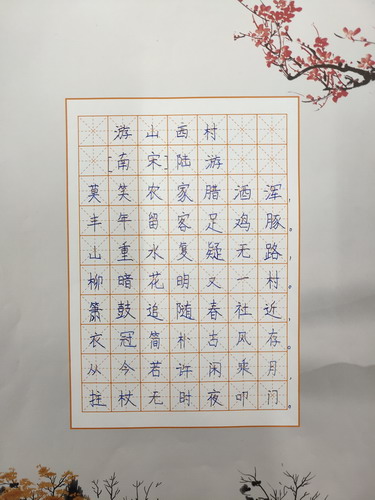 游山西村
[南宋]陆游
莫笑农家腊酒浑，
丰年留客足鸡豚。
山重水复疑无路，
柳暗花明又一村。
箫鼓追随春社近，
衣冠简朴古风存。
从今若许闲乘月，
拄杖无时夜叩门。